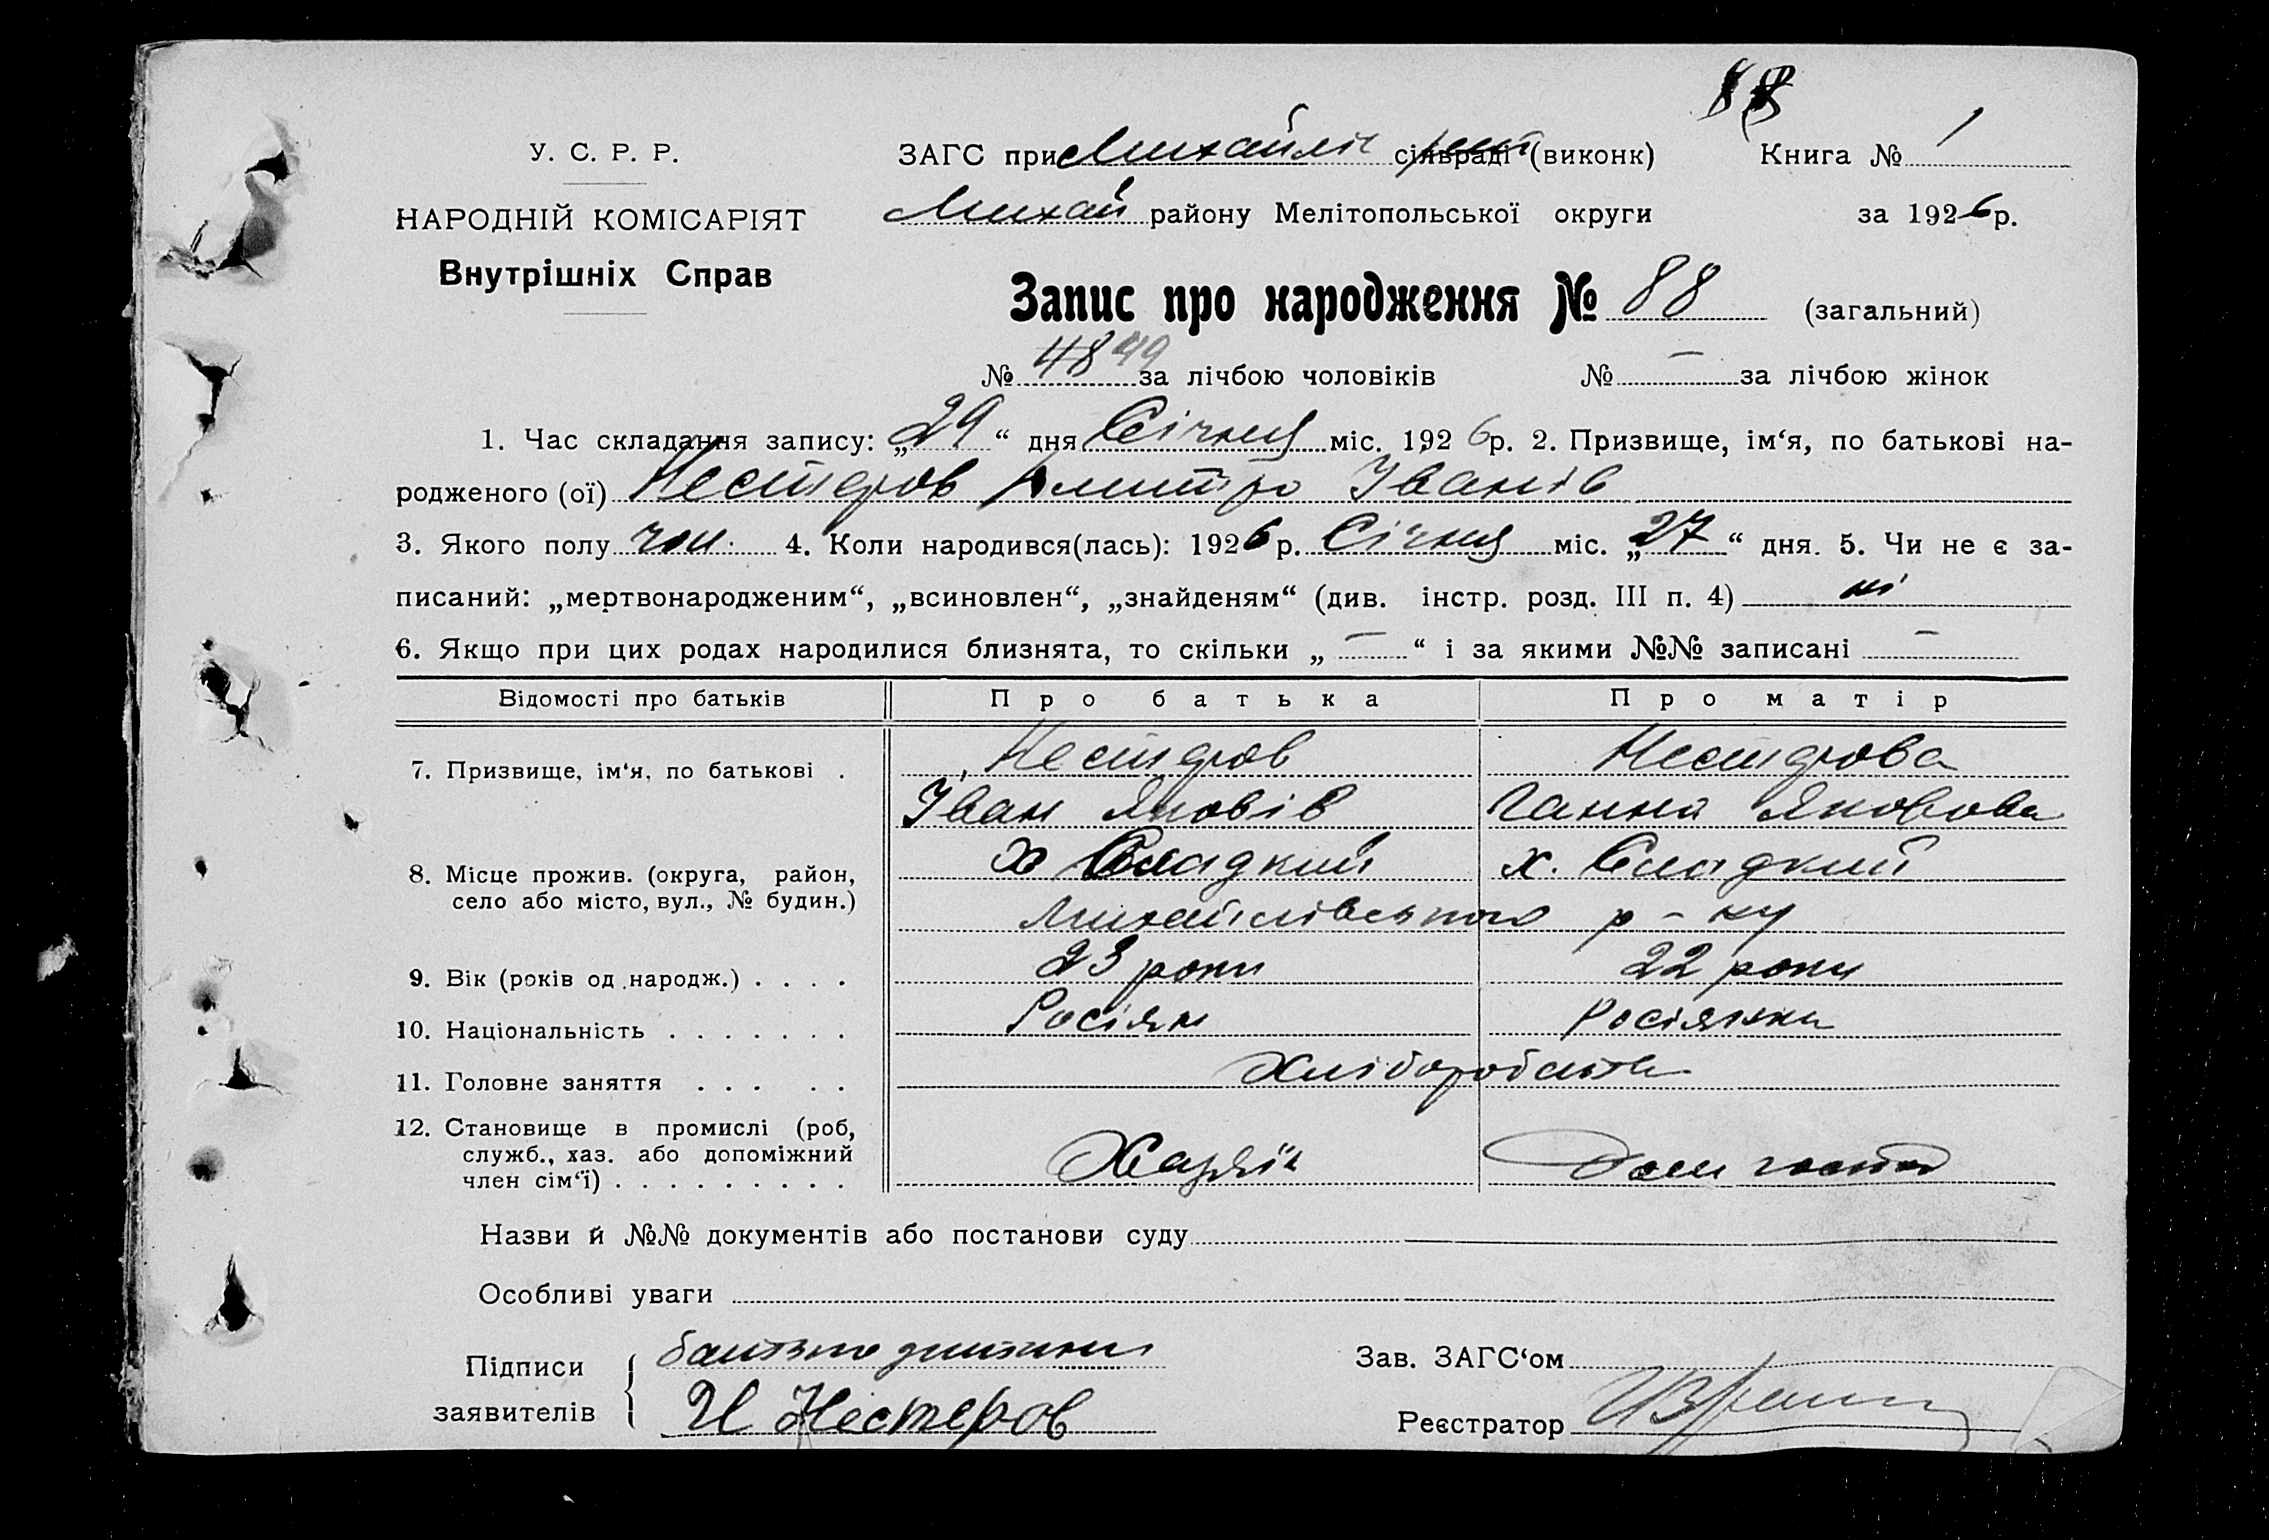 88
У. С. Р. Р.
ЗАГС при Михайлів сільраді (виконк) Книга № 1
НАРОДНІЙ КОМІСАРІЯТ
Михай району Мелітопольської округи за 1926 р.
Внутрішніх Справ
Запис про народження № 88 (загальний)
№ 48 49 за лічбою чоловіків № — за лічбою жінок
1. Час складання запису: „29“ дня Січня міс. 1926 р. 2. Призвище, ім‘я, по батькові на-
родженого (ої) Нестеров Дмитро Іванів
3. Якого полу чол. 4. Коли народився(лась): 1926 р. Січня міс. „27“ дня. 5. Чи не є за-
писаний: „мертвонародженим“, „всиновлен“, „знайденям“ (див. інстр. розд. III п. 4) ні
6. Якщо при цих родах народилися близнята, то скільки „ — “ і за якими №№ записані —
Відомості про батьків Про батька Про матір
7. Призвище, ім‘я, по батькові . Нестеров Нестерова
Іван Яковів Ганна Яковова
8. Місце прожив. (округа, район, х Сладкий х. Сладкий
село або місто, вул., № будин.) Михайлівського р-ну
9. Вік (років од народж.) . . . . 23 роки 22 роки
10. Національність . . . . . . . Росіян Росіянка
11. Головне заняття . . . . . Хліборобство
12. Становище в промислі (роб,
служб., хаз. або допоміжний Хазяїн Дом госпо
член сім‘ї) . . . . . . . . .
Назви й №№ документів або постанови суду
Особливі уваги
Підписи батько дитини Зав. ЗАГС‘ом
заявителів И Нестеров Реєстратор